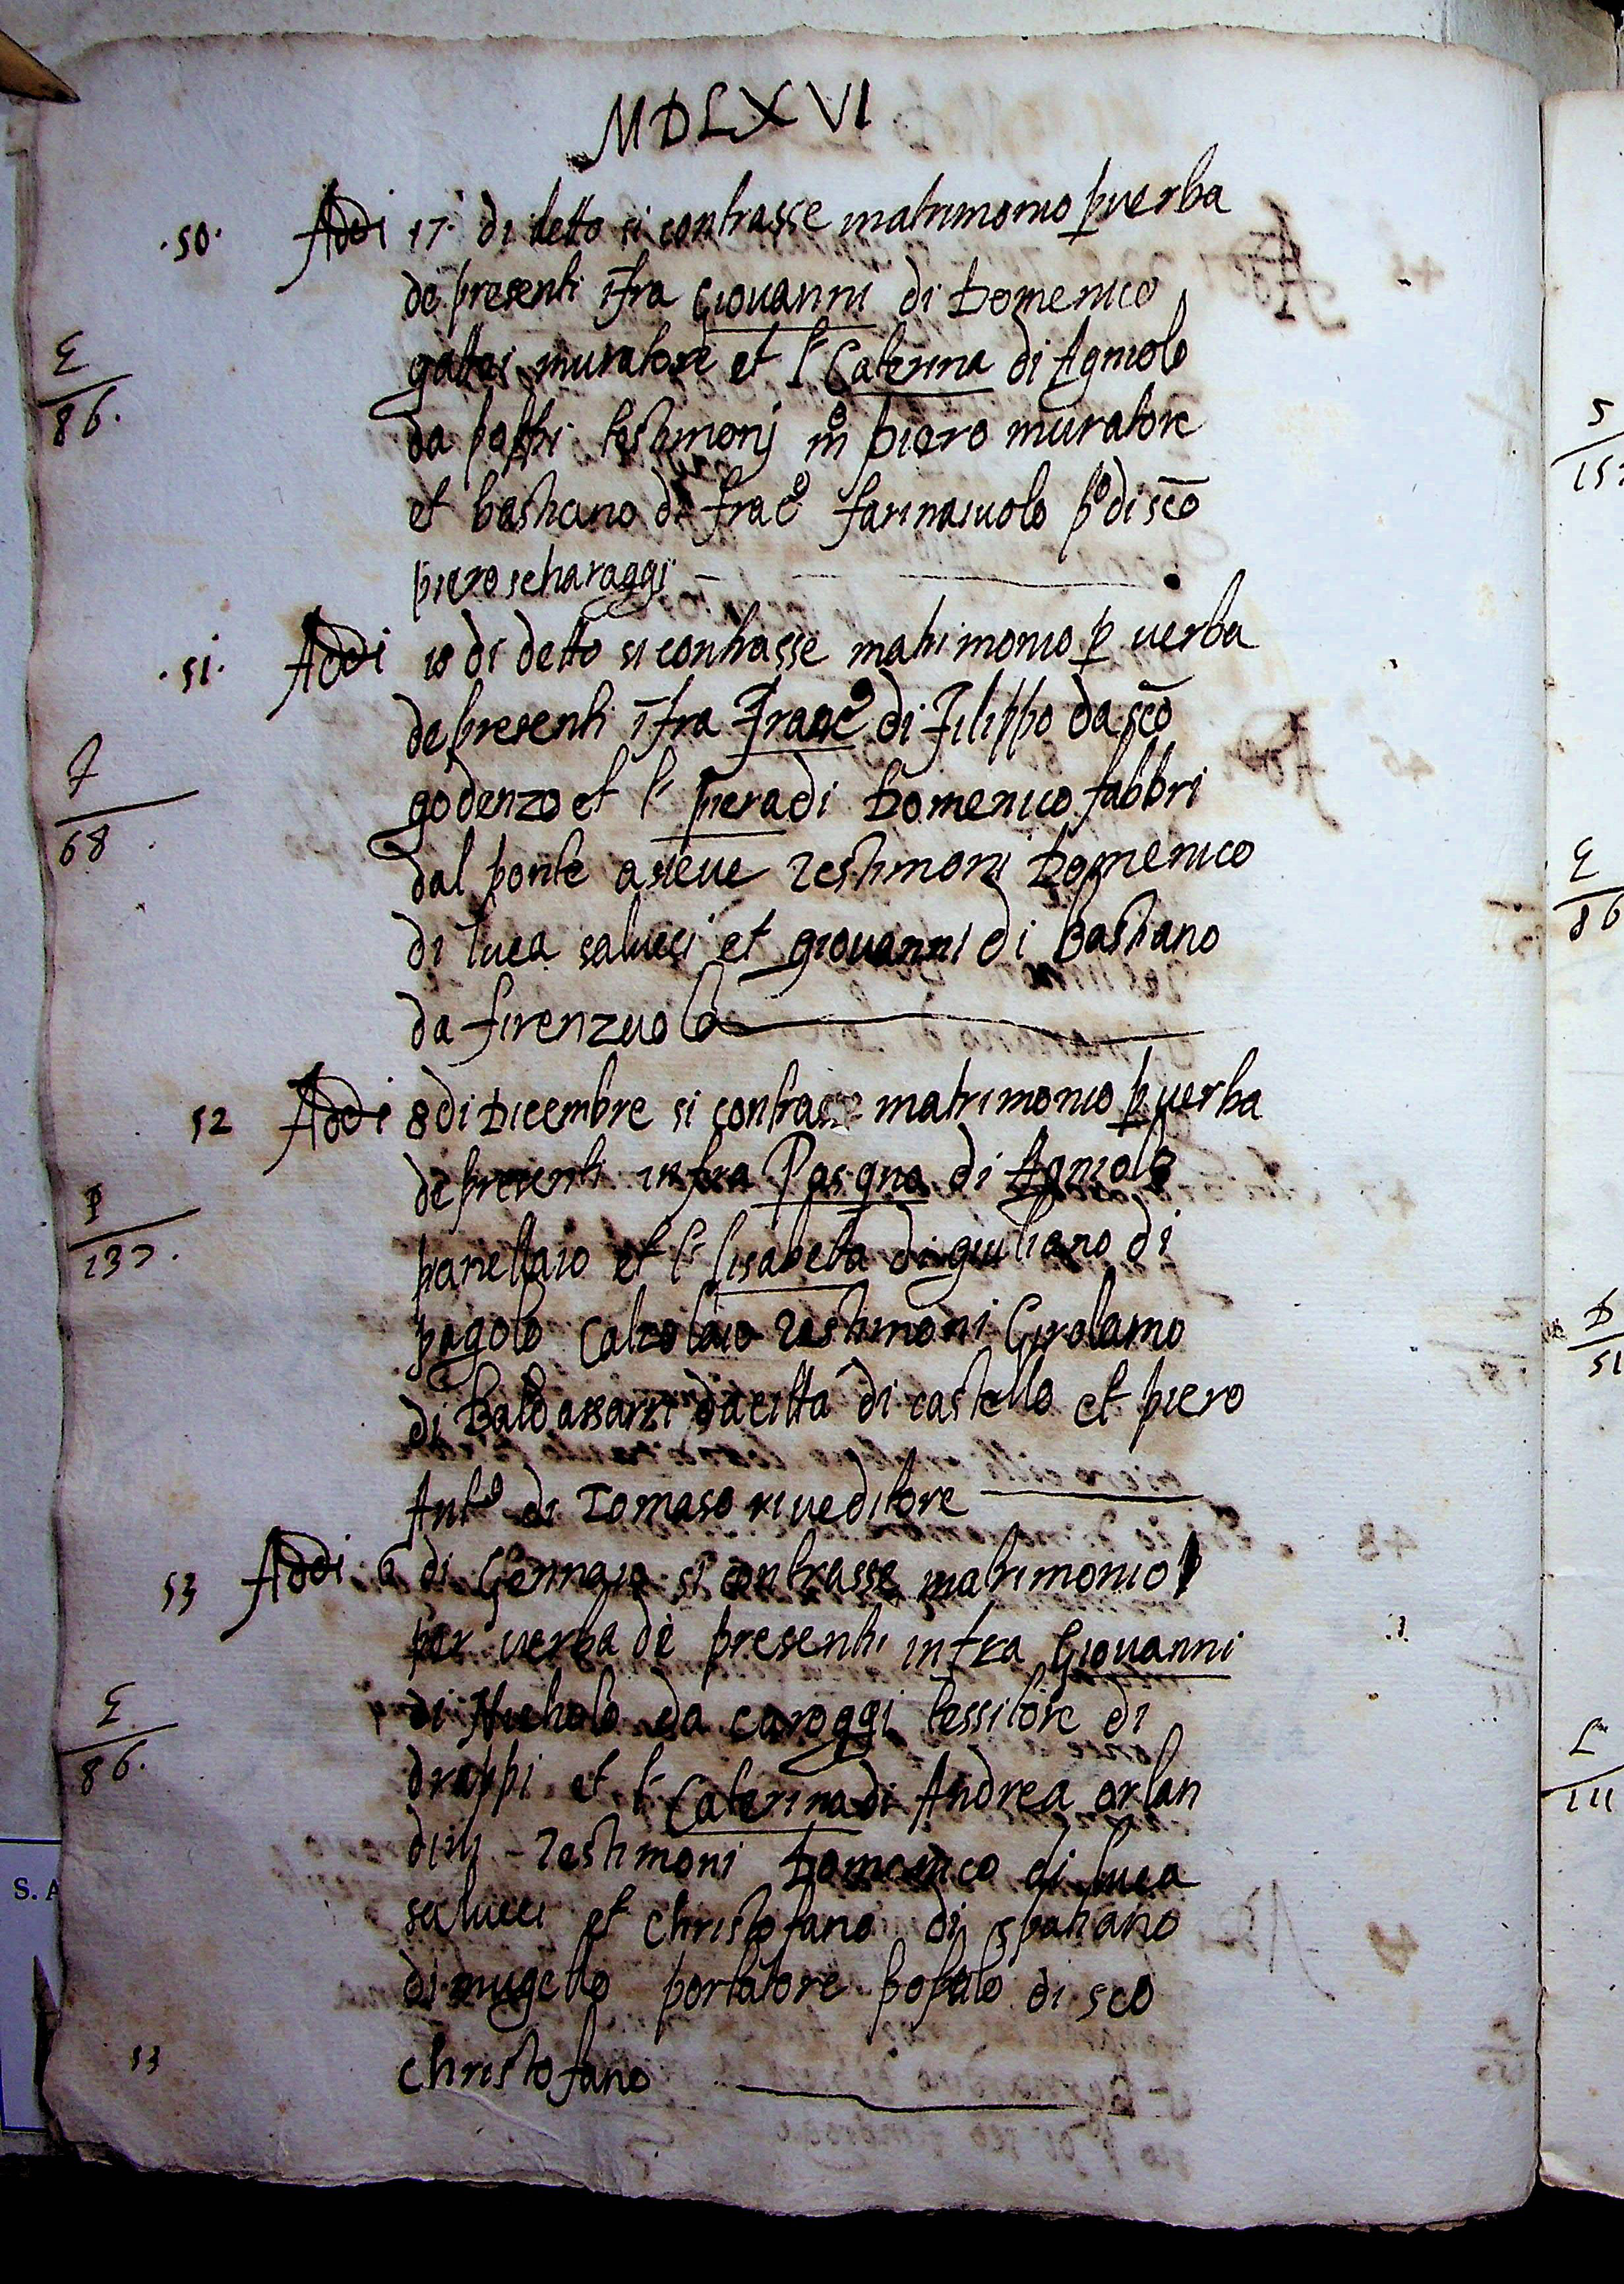 MDLXVI
.50. Addi 17 di detto si contrasse matrimonio p verba
de presenti ifra Giovanni di Domenico
E
86.
muratore et la Caterina di Agniolo
da testimonj mo piero muratore
et bastiano di franco farinaiuolo po di sco
piero scharaggi
.51. Addi 18 di detto si contrasse matrimonio p uerba
de presenti ifra Franco di Filippo da sco
F
68
godenzo et la piera di Domenico fabbri
dal ponte asieue Testimoni Domenico
di luca salucci et giouanni di Bastiano
da firenzuola
52 Addi 8 di Dicembre si contrasse matrimonio p uerba
de presenti infra Pasquo di Agniolo
P
137.
panellaio et la lisabetta di giuliano di
pagolo Calzolaio Testimoni Girolamo
di Baldassarri da citta di castello et piero
Anto di Tomaso riueditore
53 Addi 6 di Gennaio si contrasse matrimonio
per uerba de presenti infra Giouanni
di Nicholo da caroggi tessitore di
E
86.
drappi et la Caterina di Andrea orlan
dini Testimoni Domenico di luca
salucci et Christofano di
di mugello portatore popolo di sco
53
Christofano
5
E
86
D
51
L
111
S. A